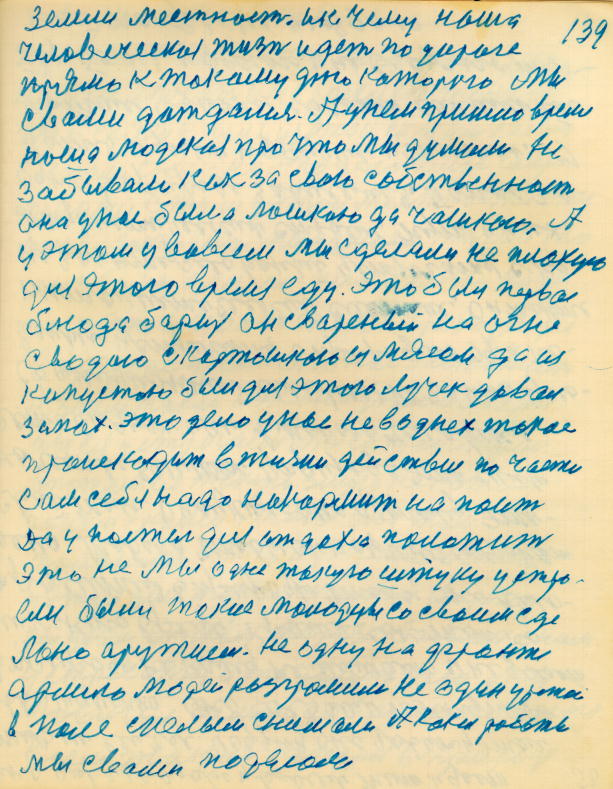 земли местност. и к чему наша 139
человеческая жизн идет по дороге
прямо к такому дню которого мы
свами дождался. А унем пришло время
наша людская про что мы думали не
забывали как за свою собственност
она у нас была ложкою да чашкою. А
у этом у вовсем мы сделали не плохую
для этого время еду. Это был первое
блюда борщ он свареный на огне
сводою скартошкою и мясом да из
капустою были для этого лучек давал
запах. это дело у нас не в однех такое
происходит в жизни действие по части
сам себя надо накормит на поит
да у постел для отдоха положит
это не мы одне такую штуку устро-
ели были такие молодцы со своим сде
лано аружием. не одну на фронте
армию людей разгромили не один урожай
в поле смелым снимали А каки работы
мы свами поделали